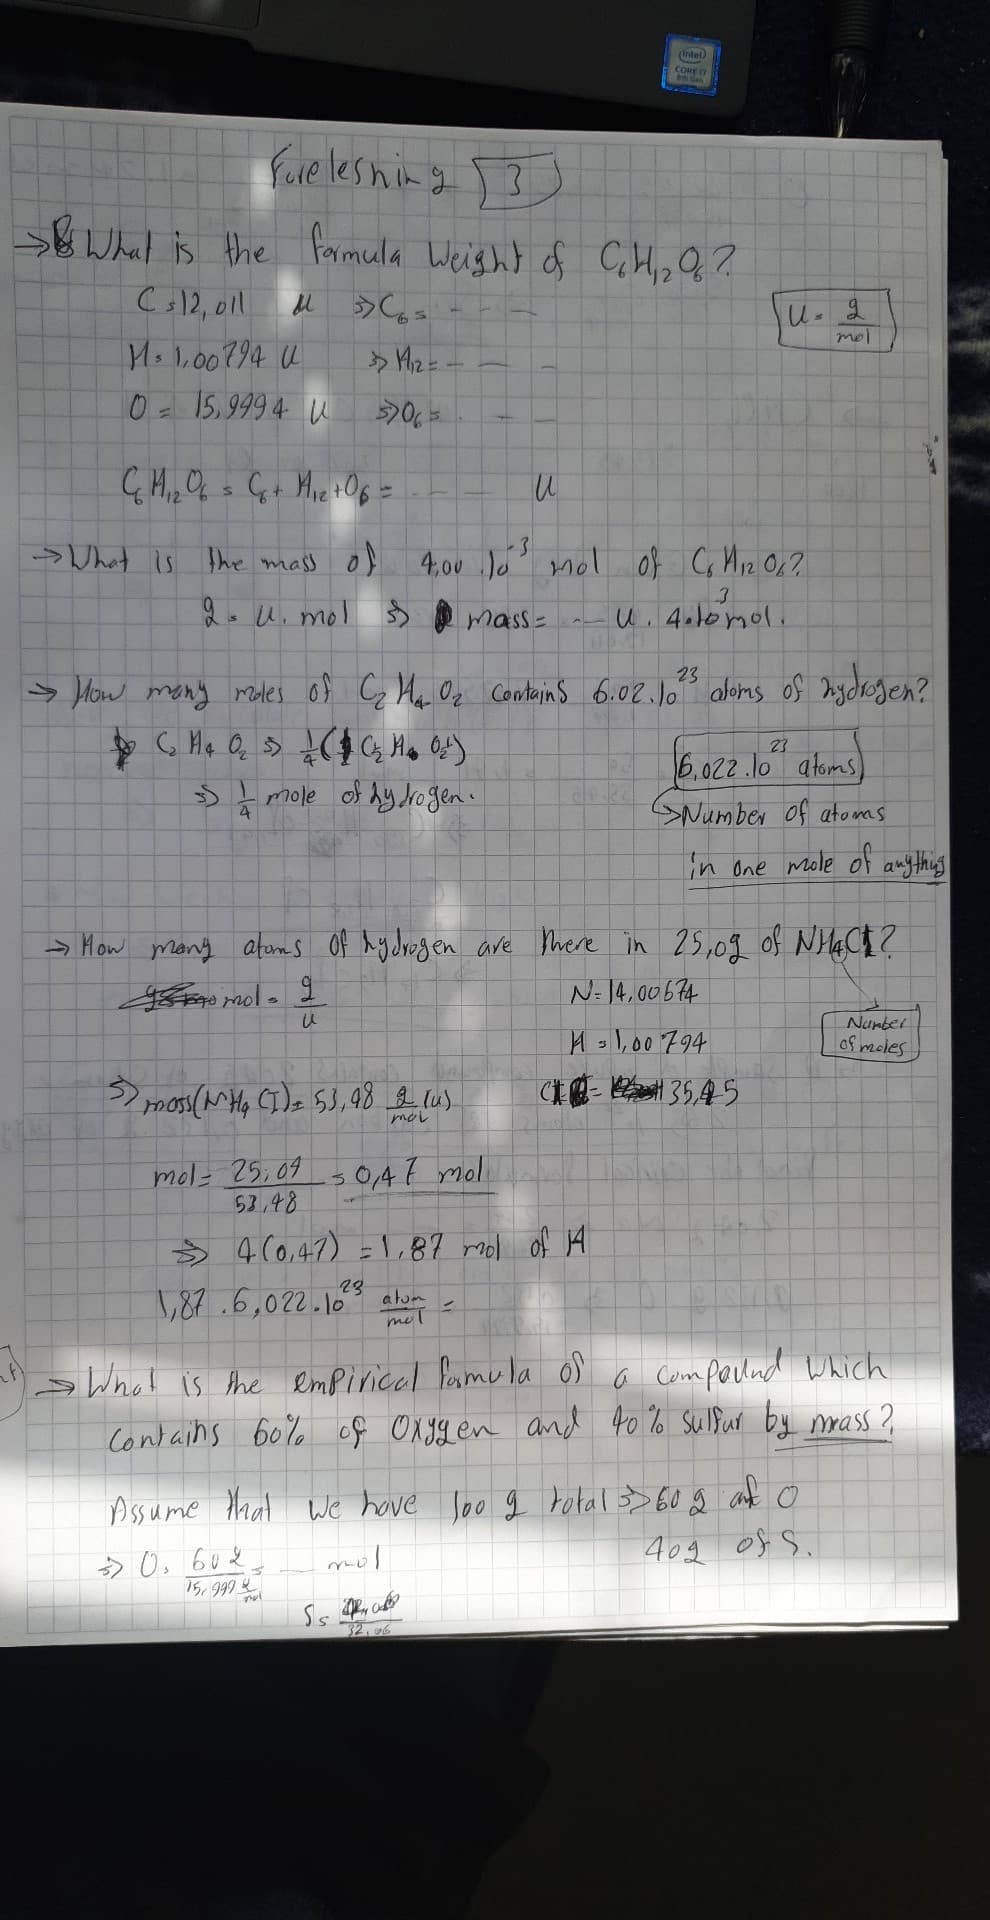 intel
CORE i7
8th Gen
Foreleshing 3
→ What is the formula Weight of C₆H₁₂O₆?
C = 12,011 u ⇒ C₆ = - - -
U = g/mol
H = 1,00794 u ⇒ H₁₂ = - - -
O = 15,9994 u ⇒ O₆ = - - -
C₆H₁₂O₆ = C₆ + H₁₂ + O₆ = - - - u
→ What is the mass of 4,00 . 10⁻³ mol of C₆H₁₂O₆?
g = u. mol ⇒ mass = --- u . 4.10⁻³ mol.
→ How many moles of C₂H₄O₂ contains 6.02.10²³ atoms of hydrogen?
C₂H₄O₂ ⇒ 1/4 (
6,022.10²³ atoms
⇒ 1/4 mole of hydrogen.
↳ Number of atoms
in one mole of anything
→ How many atoms of hydrogen are there in 25,0g of NH₄Cl?
mol = g/u
N = 14,00674
Number
of moles
H = 1,00794
⇒ mass(NH₄Cl) = 53,48 g/mol (u)
Cl = 35,45
mol = 25,0g/53,48 = 0,47 mol
⇒ 4(0,47) = 1,87 mol of H
1,87 . 6,022.10²³ atom/mol =
→ What is the empirical formula of a compound which
contains 60% of Oxygen and 40% sulfur by mass?
Assume that we have 100 g total ⇒ 60 g of O
40g of S.
⇒ O = 60g/15,999 g/mol = --- mol
S = /32,06